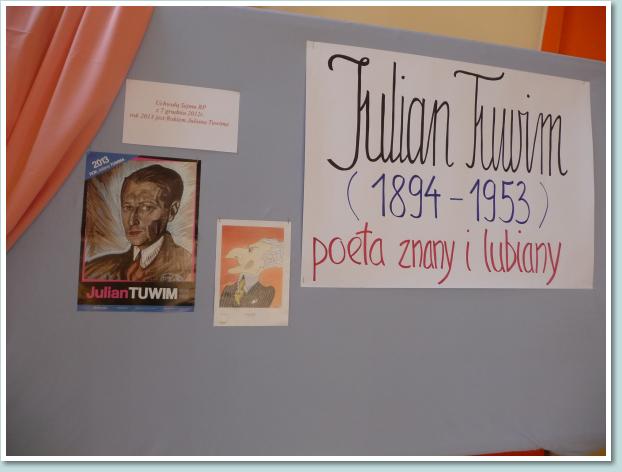 Uchwałą Sejmu RP
z 7 grudnia 2012r.
rok 2013 jest Rokiem Juliana Tuwima
2013
ROK JULIANA TUWIMA
JulianTUWIM
Julian Tuwim
(1894-1953)
poeta znany i lubiany